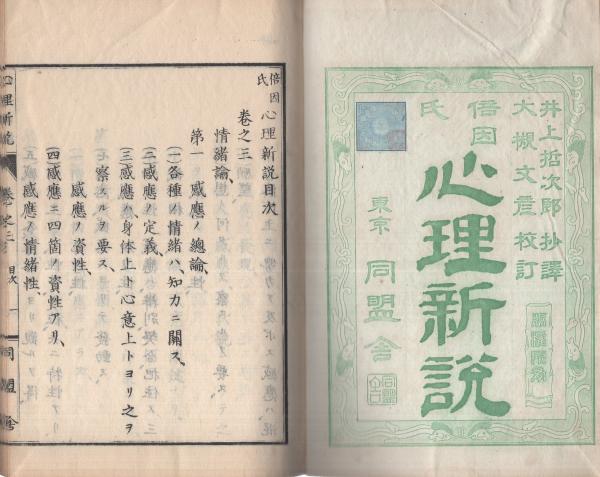 井上哲次郎抄譯
大槻文彦校訂
倍因氏
心理新説
東京 同盟舎
倍因氏 心理新説目次
卷之三
情緒論、
第一 感應ノ總論、
(一)各種ノ情緒ハ知力ニ關ス、
(二)感應ノ定義、
(三)感應ハ身体上ト心意上トヨリ之ヲ
察スルヲ要ス、
感應ノ資性、
(四)感應ニ四箇ノ資性アリ、
感應ノ情緒性、
心理新説
卷之三
目次
一
同盟舎